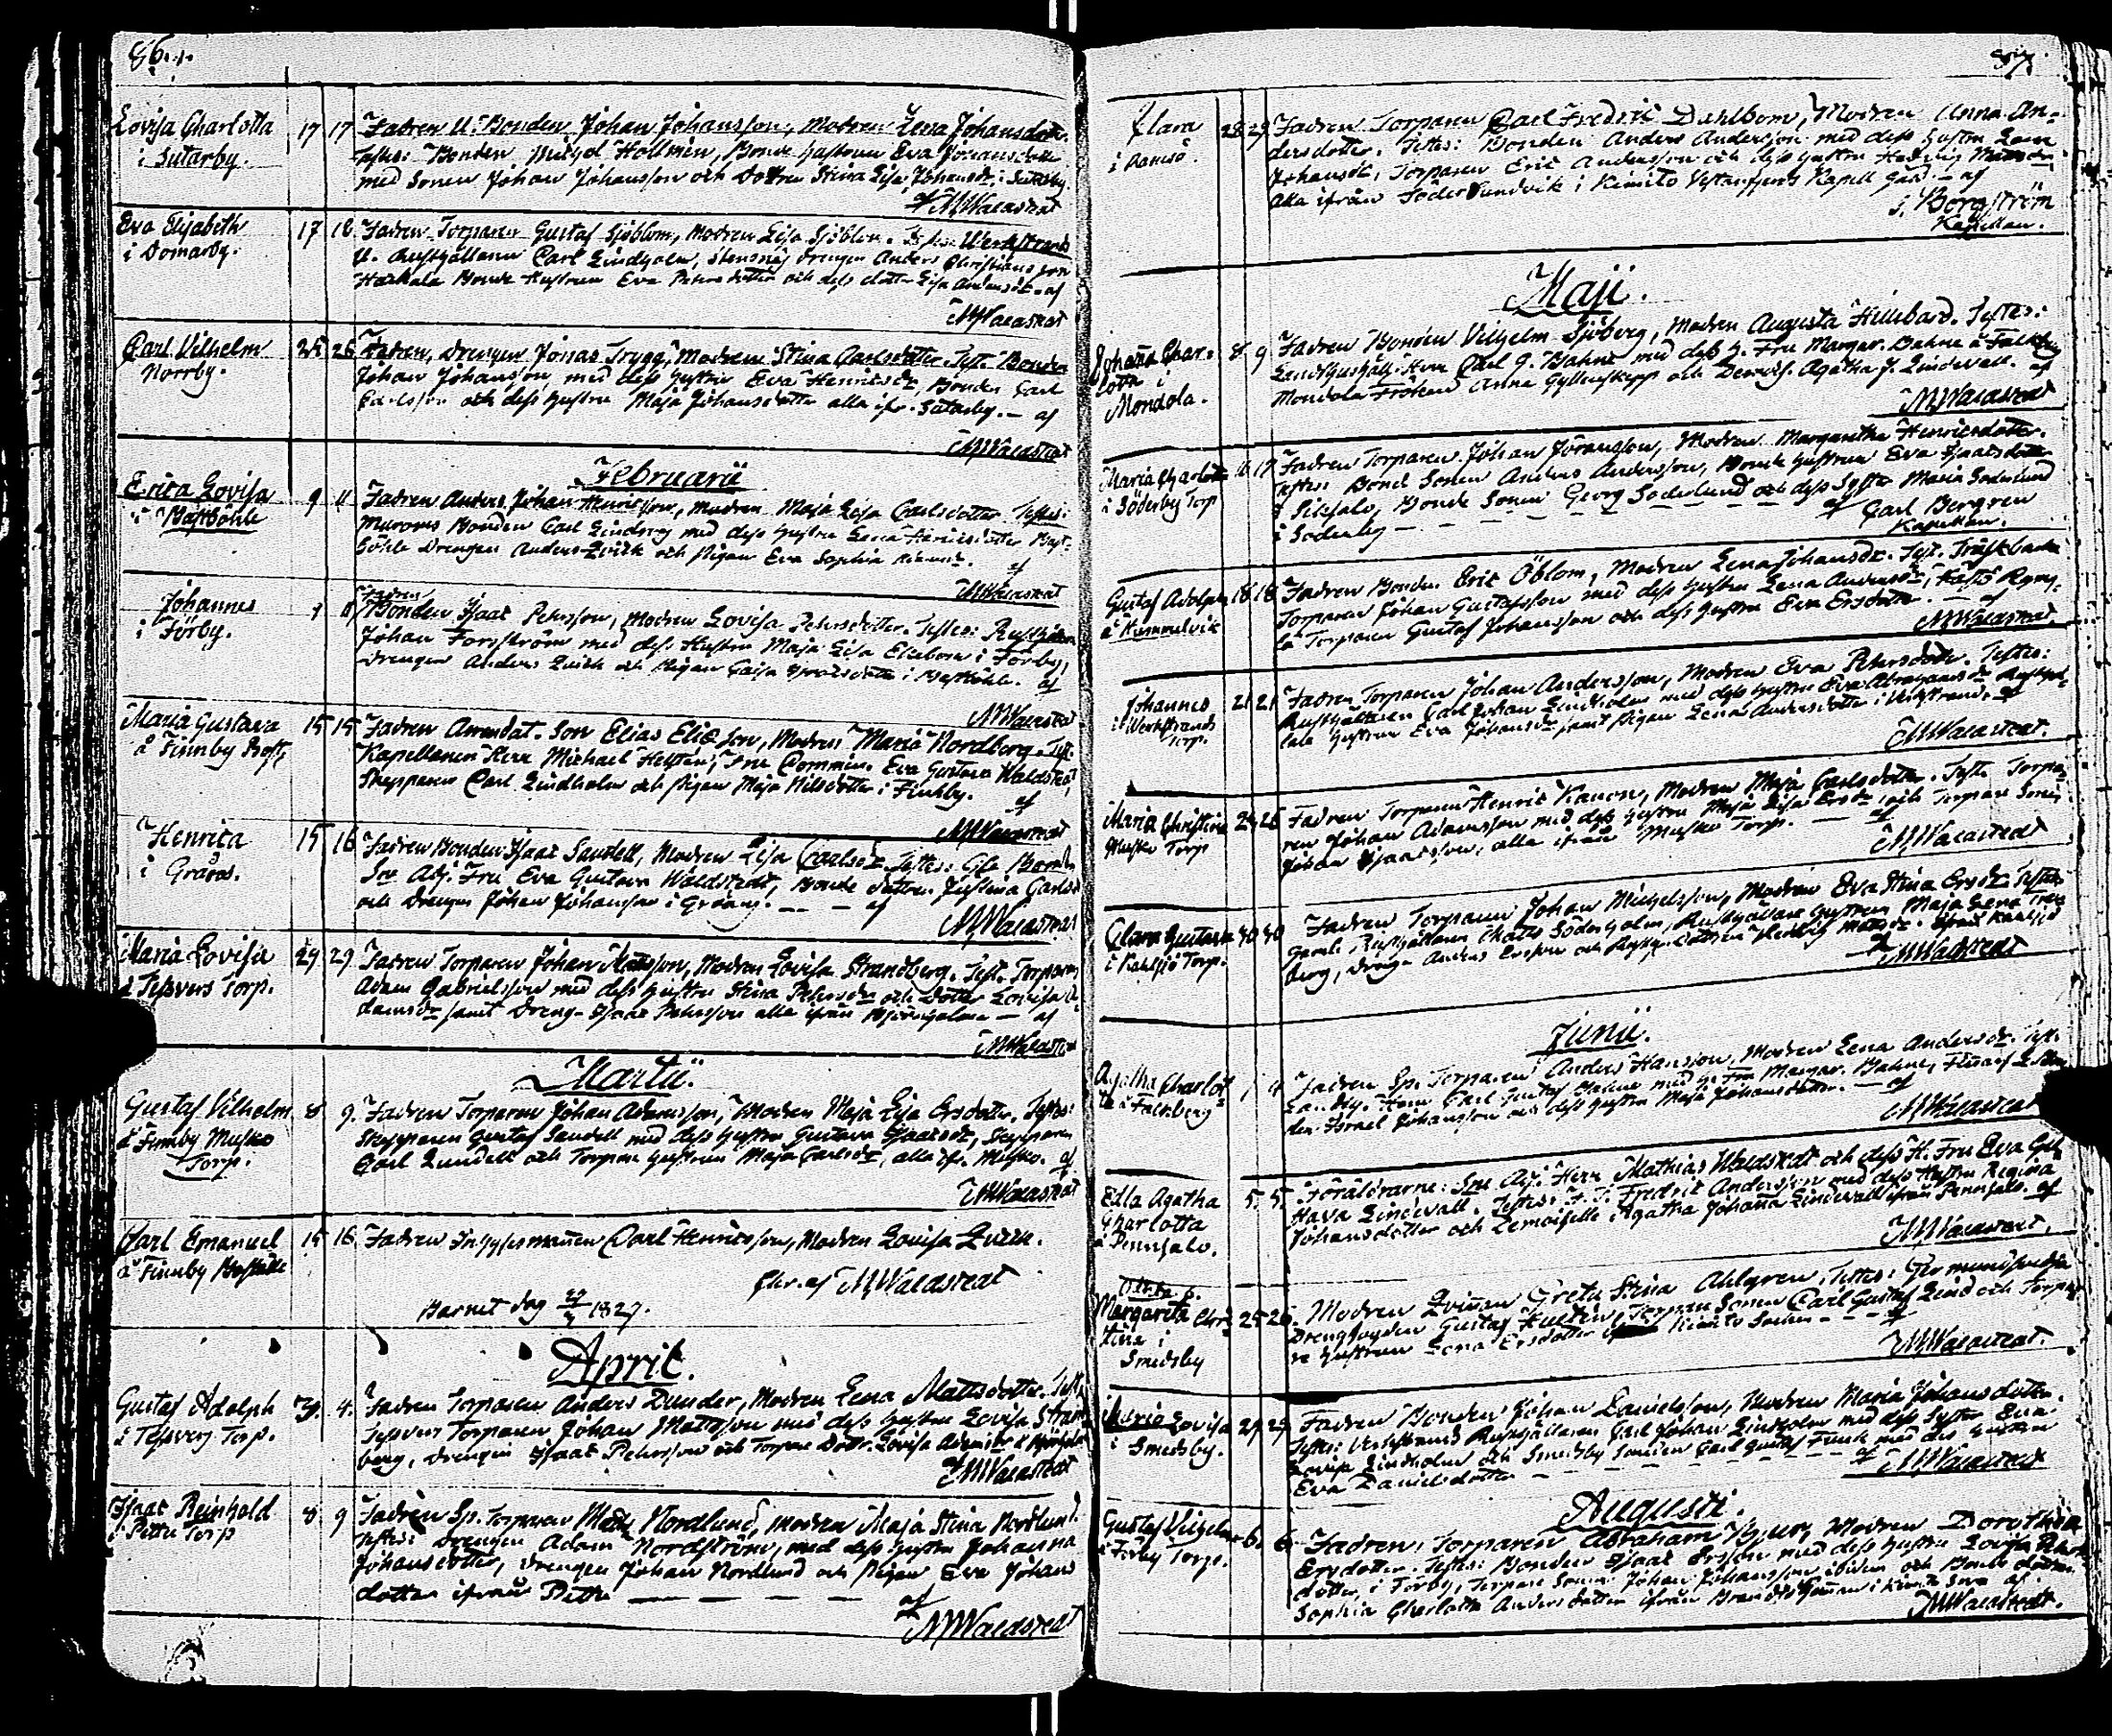 86.
Lovisa Charlotta
i Sutarby.
17 17 Fadren U. Bonden Johan Johansson, Modren Lena Johansdotter.
Testes: Bonden Michel Hollmén, Bonde hustrun Eva Johansdotter
med Sonen Johan Johansson och Dottren Stina Lisa Johansdr i Sutarby
af MWaldstedt
Eva Elisabeth
i Domarby.
17 18 Fadren Torparen Gustaf Sjöblom, Modren Lisa Sjöblom. Werkstrands
U. Rusthållaren Carl Lindholm, Stensnäs Drengen Anders Christiansson
Bonde Hustrun Eva Petersdotter och dess dotter Lisa Andersdr. af
MWaldstedt
Carl Vilhelm
Norrby.
25 26 Fadren, Drengen Jonas Trygg, Modren Stina Carlsdotter. Test. Bonden
Johan Johansson med dess hustru Eva Henricsdr, Bonden Carl
Carlsson och dess hustru Maja Johansdotter alla ifr. Sutarby. - af
MWaldstedt
Februarii
Erica Lovisa
i Bastböhle
9 11 Fadren Anders Johan Henricsson, Modren Maja Lisa Carlsdotter Testes:
Muroms Bonden Carl Lindberg med dess hustru Lena Henricsdotter Bast-
böhle Drengen Anders Qvick och Pigan Eva Sophia
af
MWaldstedt
Johannes
i Förby.
9 11 Fadren
Bonden Isaac Pehrsson, Modren Lovisa Pehrsdotter. Testes: Rusthållaren
Johan Forsström med dess Hustru Maja Lisa Ekebom i Förby,
Drengen Anders Qvick och Pigan Cajsa Israelsdotter i Bastböhle. af
MWaldstedt
Maria Gustava
å Finnby Bost.
15 15 Fadren Arrendat. Son Elias Eliæson, Modren Maria Nordberg. Test.
Kapellanen Herr Michael Helsten, Fru Commin. Eva Gustava Waldstedt,
Skepparen Carl Lindholm och Pigan Maja Nilsdotter i Finnby.
af
MWaldstedt
Henrica
i Gråäs.
15 16 Fadren Bonden Isaac Sandell, Modren Lisa Carlsdr. Testes:
Sne Adj. Fru Eva Gustava Waldstedt, Bonde dottren Justina Carlsdr
och Drengen Johan Johansson i . - - af
MWaldstedt
Maria Lovisa
i Tessvers Torp.
29 29 Fadren Torparen Johan Mattsson, Modren Lovisa Strandberg. Test. Torparen
Adam Gabrielsson med dess hustru Stina Petersdr och Dotter Lovisa A-
damsdr samt Dreng- Isaac Pehrsson alla ifrån - af
MWaldstedt
Martii.
Gustaf Vilhelm
å Finnby Musko
Torp.
8 9. Fadren Torparen Johan Adamsson, Modren Maja Lisa Ersdotter. Testes:
Skepparen Gustaf Sandell med dess hustru Gustava Isaacsdr, Skepparen
Carl Lundell och Torpare hustrun Maja Carlsdr, alla ifr. Musko. af
MWaldstedt
Carl Emanuel
å Finnby Boställe
15 16 Fadren Inhysesmannen Carl Henricsson, Modren Lovisa Qvick.
Chr. af MWaldstedt
Barnet dog 1827.
April.
Gustaf Adolph
i Tessvers Torp.
3. 4. Fadren Torparen Anders Dunder, Modren Lena Mattsdotter. Test.
Tessvers Torparen Johan Mattsson med dess hustru Lovisa Strand-
berg, Drengen Isaac Pehrsson och Torpare Dottr. Lovisa Adamsdr
af MWaldstedt
Isaac Reinhold
i Pettu Torp
8 9 Fadren Sp. Torparen Matts Nordlund, Modren Maja Stina Nordlund.
Testes: Drengen Adam Nordström, med dess hustru Johanna
Johansdotter, Drengen Johan Nordlund och Pigan Eva Johans
dotter ifrån Pettu - - - - -
af
MWaldstedt
87.
Clara
i Damsö.
28 29 Fadren Torparen Carl Fredric Dahlbom, Modren Anna An-
dersdotter. Testes: Bonden Anders Andersson med dess hustru Lena
Johansdr, Torparen Eric Andersson och dess hustru Hedvig Mattsdr,
alla ifrån Söder Sundvik i Kimito Vestanfjerds Kapell Gäld - af
J. Borgström
Kapellan.
Maji.
Johanna Char-
lotta i
Mondola.
8 9 Fadren Bonden Vilhelm Sjöberg, Modren Augusta Hillebard. Testes:
Landtushåll. Herr Carl G. Bahne med dess h. Fru Margar. Bahne å Falkberg
Mondola Fröken Anna Gyllenskepp och Demois. Agatha J. Lindevall. af
MWaldstedt
Maria Charlotta
i Söderby Torp
16 17 Fadren Torparen Johan Johansson, Modren Margaretha Henricsdotter.
Testes: Bond Sonen Anders Andersson, Bonde hustrun Eva Isaacsdotter
i Pilfalo, Bonde Sonen Georg Söderlund och dess Syster Maria Söderlund
i Söderby - - - - - - - af Carl Bergren
Kapellan.
Gustaf Adolph
å Hummelvik
18 18 Fadren Bonden Eric Öblom, Modren Lena Johansdr. Test. Träskbacka
Torparen Johan Gustafsson med dess hustru Lena Andersdr,
Torparen Gustaf Johansson och dess hustru Eva Ersdotter. - af
MWaldstedt
Johannes
i Werkstrands
Torp.
21 21 Fadren Torparen Johan Andersson, Modren Eva Petersdotter. Testes:
Rusthållaren Carl Johan Lindholm med dess hustru Eva Abrahamsdr
hustrun Eva Johansdr, samt Pigan Lena Andersdotter i Verkstrand. af
MWaldstedt.
Maria Christina
Musko Torp
25 26 Fadren Torparen Henric Kanon, Modren Maja Carlsdotter. Test. Torpa-
ren Johan Adamsson med dess hustru Maja Lisa Ersdr och Torpare Sonen
Johan Isaacsson, alla ifrån Musko Torp. - - af
MWaldstedt
Clara Gustava
i Kahlsjö Torp.
30 30 Fadren Torparen Johan Michelsson, Modren Eva Stina Ersdr. Testes
Gamle Rusthållaren Matts Söderholm, Rusthållare hustrun Maja Lena
berg, Dreng Anders Ersson och Dottren Hedvig Mattsdr. ifrån Kahlsjö
af MWaldstedt
Junii.
Agatha Charlot-
ta å Falkberg
1 4 Fadren Sp. Torparen Anders Hansson, Modren Lena Andersdr. Test.
Landth. Herr Carl Gustaf Bahne med h. Fru Margar. Bahne,
den Israel Johansson och dess hustru Maja Johansdotter. - af
MWaldstedt
Edla Agatha
Charlotta
å Pennfalo.
5. 5. Föräldrarne: Sne Adj. Herr Mathias Waldstedt och dess H. Fru Eva Gu-
stava Lindevall. Testes: Fredric Andersson med dess Hustru Regina
Johansdotter och Demoiselle Agatha Johanna Lindevall ifrån Pennfalo. af
MWaldstedt.
Margareta Chri-
stina i
Smedsby
25 26. Modren Qvinnan Greta Stina Ahlgren. Testes: Germundsvedja
Drengfogden Gustaf, Torpare Sonen Carl Gustaf Lind och Torpa-
re hustrun Lena Ersdotter Kimito Socken - - - af
MWaldstedt.
Maria Lovisa
i Smedsby.
29 29 Fadren Bonden Johan Danielsson, Modren Maria Johansdotter.
Testes: Verkstrands Rusthållaren Carl Johan Lindholm med dess Syster Eva
Lovisa Lindholm och Smedsby Carl Gustaf Funk med dess hustru
Eva Danielsdotter - - - - - - - af
MWaldstedt
Augusti.
Gustaf Vilhelm
å Förby Torp.
6. 6 Fadren, Torparen Abraham, Modren Dorothea
Ersdotter. Testes: Bonden Isaac Ersson med dess hustru Lovisa Pehrs-
dotter, i Förby, Torpare Sonen Johan Johansson ibidem och Bonde dottren
Sophia Charlotta Andersdotter ifrån i Kimito Sn af
MWaldstedt.